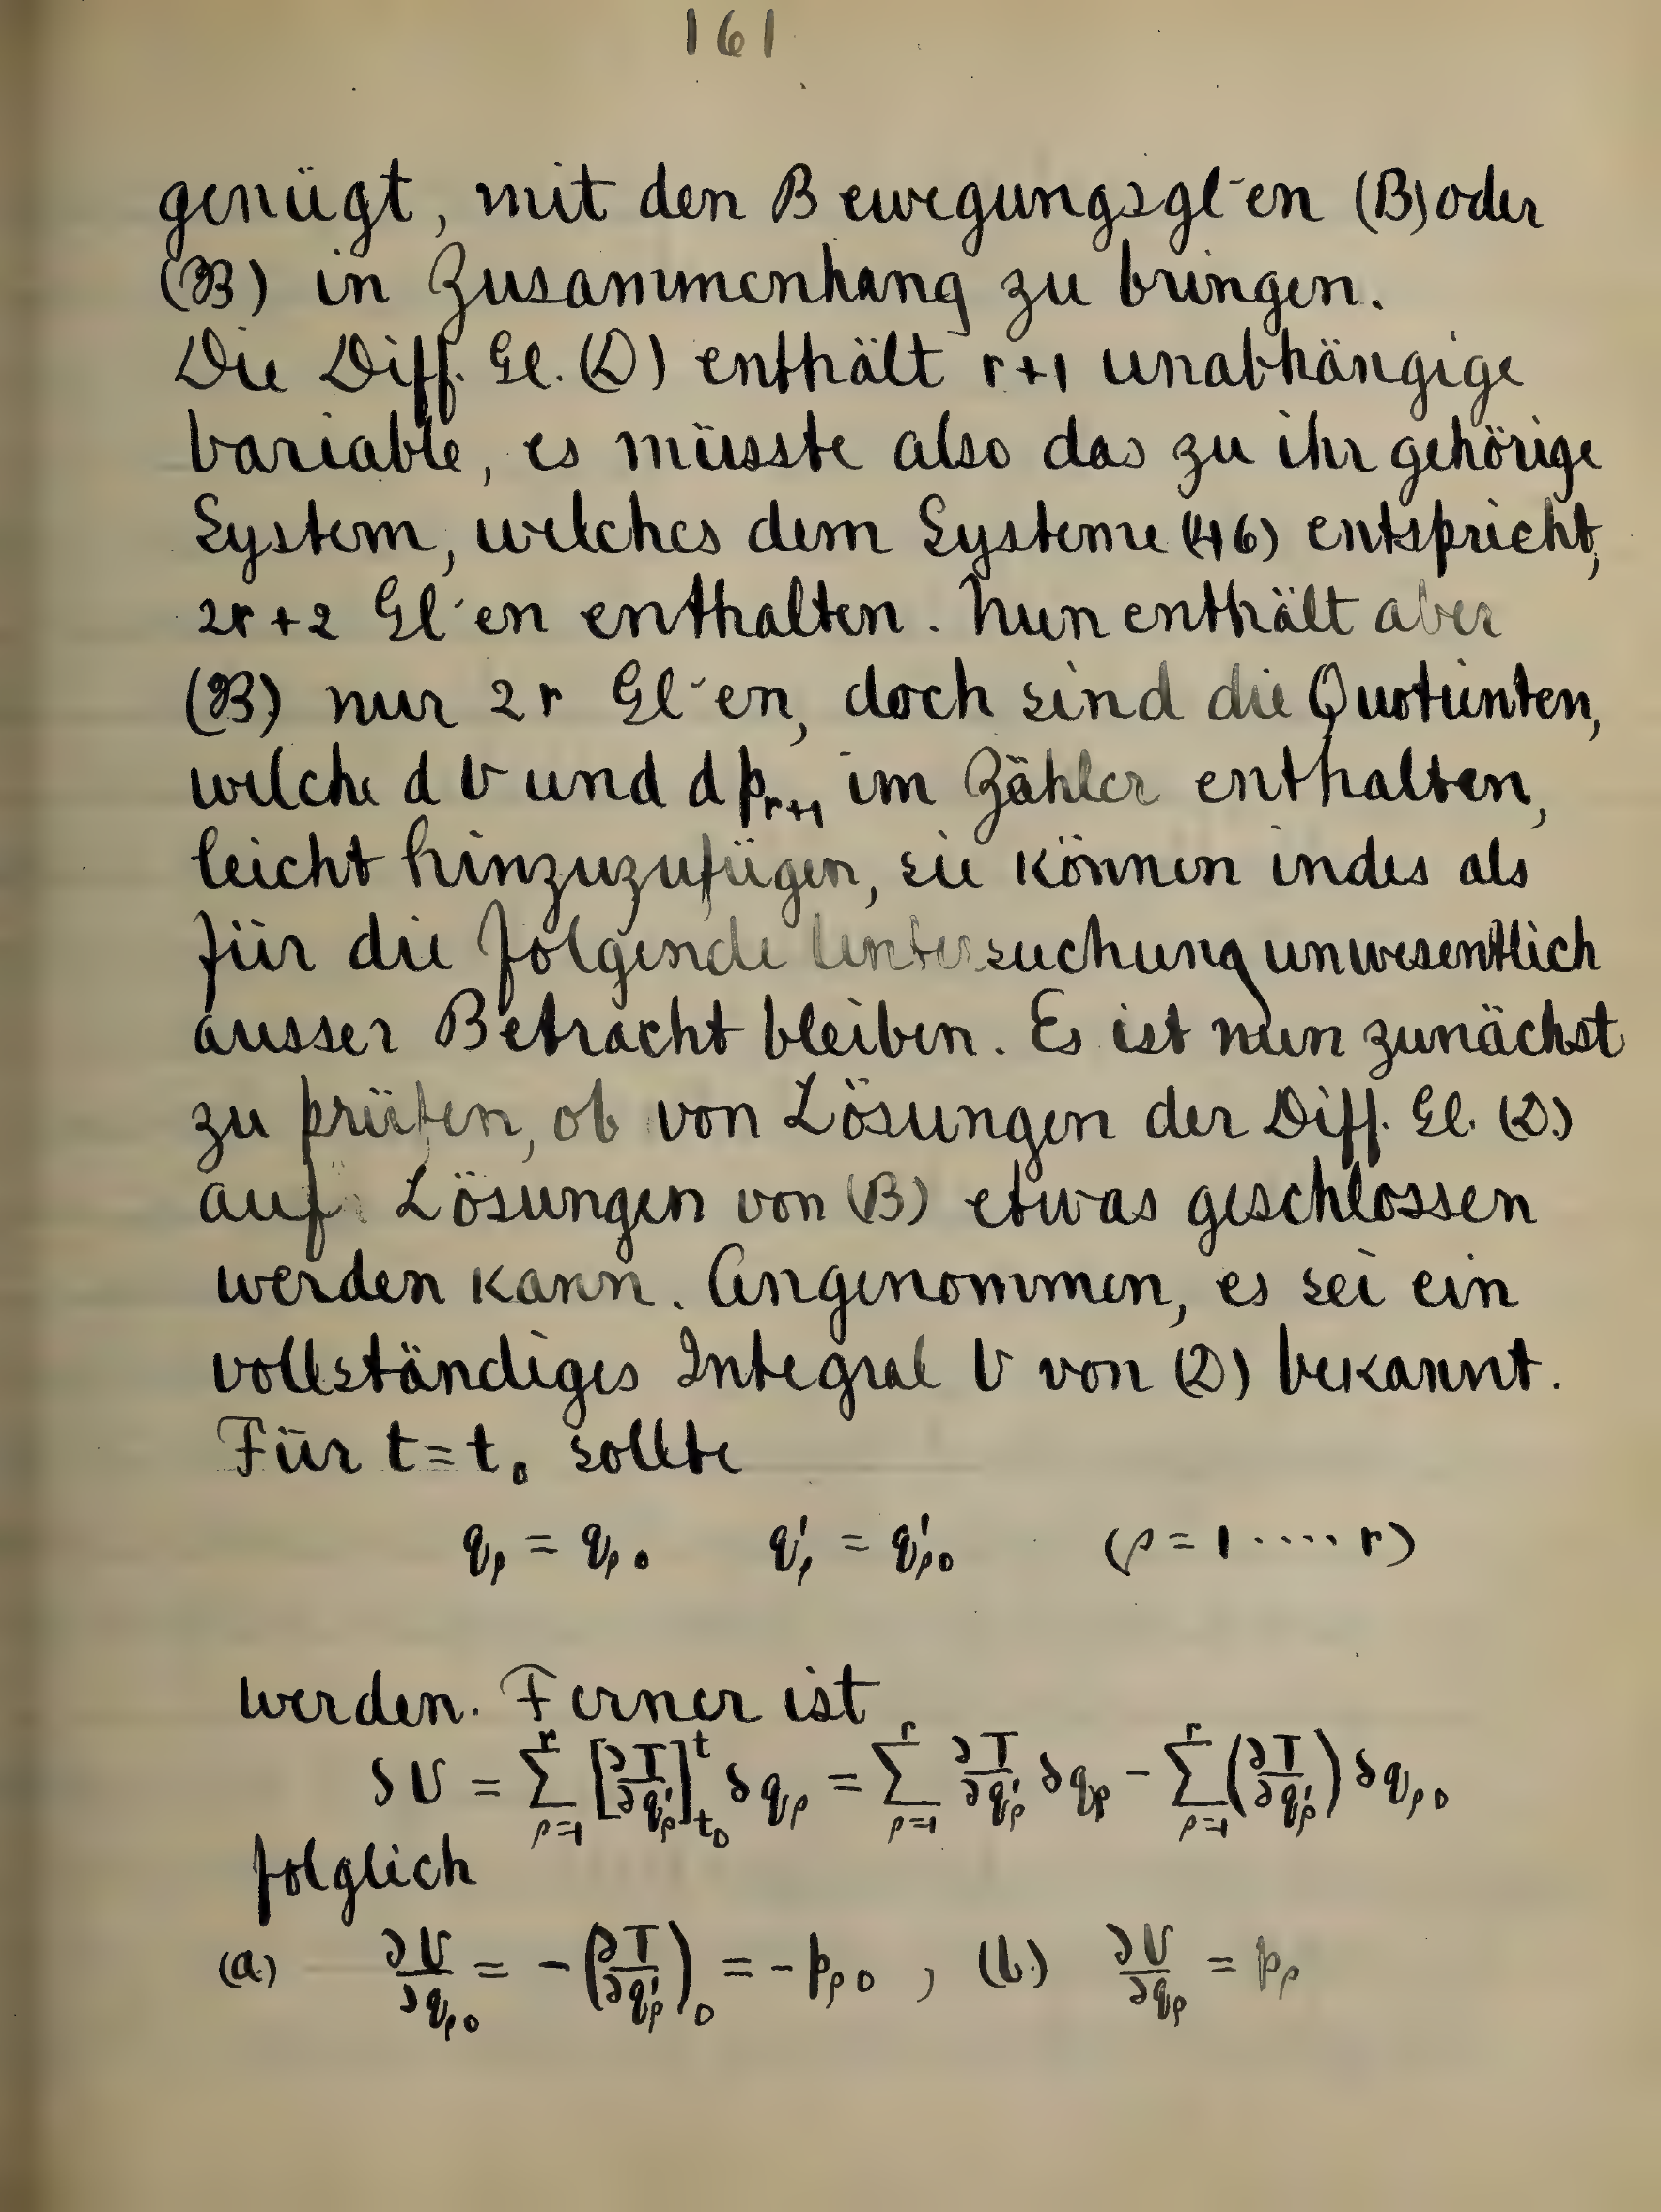 161
genügt, mit den Bewegungsgl-en (B) oder
(𝔅) in Zusammenhang zu bringen.
Die Diff. Gl. (D) enthält r+1 unabhängige
Variable, es müsste also das zu ihr gehörige
System, welches dem Systeme (46) entspricht,
2r+2 Gl-en enthalten. Nun enthält aber
(𝔅) nur 2r Gl-en, doch sind die Quotienten,
welche dV und dp_{r+1} im Zähler enthalten,
leicht hinzuzufügen, sie können indes als
für die folgende Untersuchung unwesentlich
ausser Betracht bleiben. Es ist nun zunächst
zu prüfen, ob von Lösungen der Diff. Gl. (D.)
auf Lösungen von (B) etwas geschlossen
werden kann. Angenommen, es sei ein
vollständiges Integral V von (D) bekannt.
Für t=t₀ sollte
q_ρ = q_{ρ0} q'_ρ = q'_{ρ0} (ρ = 1 .... r)
werden. Ferner ist
δV = ∑_{ρ=1}^{r} [∂T/∂q'_ρ]_{t₀}^{t} δq_ρ = ∑_{ρ=1}^{r} ∂T/∂q'_ρ δq_ρ - ∑_{ρ=1}^{r} (∂T/∂q'_ρ) δq_{ρ0}
folglich
(a.) ∂V/∂q_{ρ0} = -(∂T/∂q'_ρ)₀ = -p_{ρ0} , (b.) ∂V/∂q_ρ = p_ρ